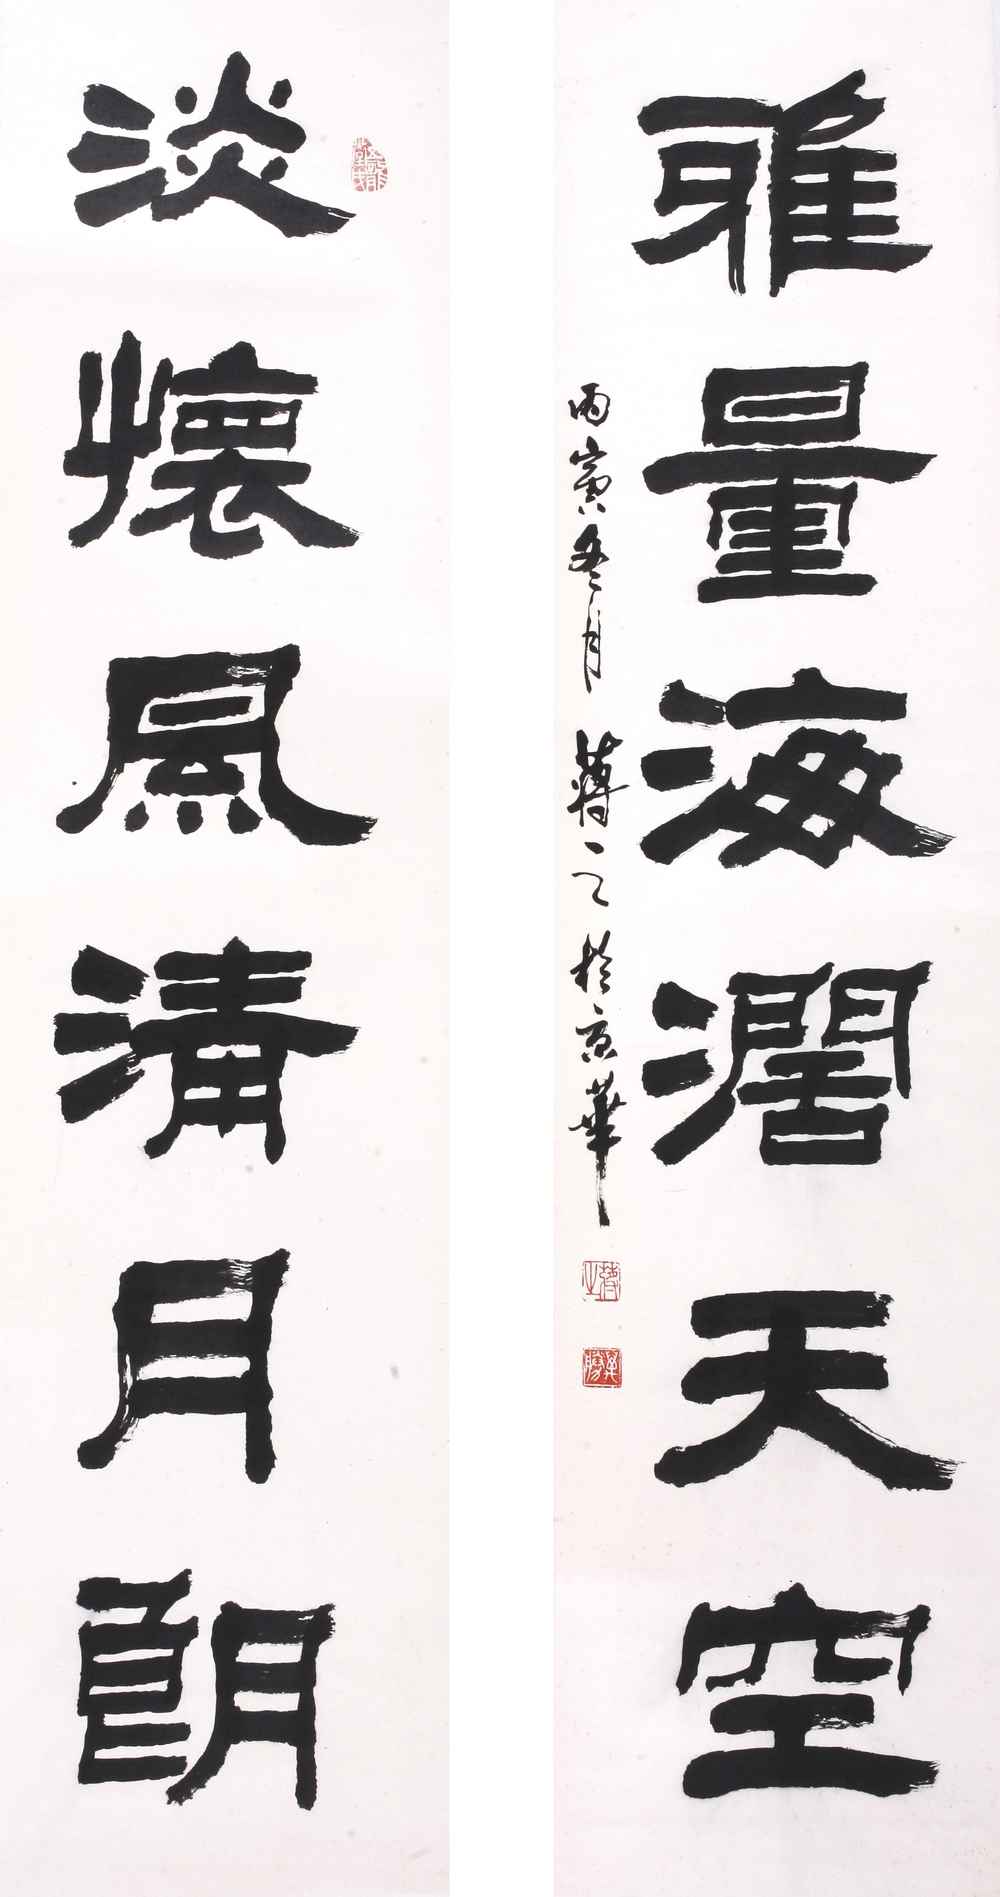 雅量海濶天空
丙寅冬月蔣之於京華
淡懷風清月朗